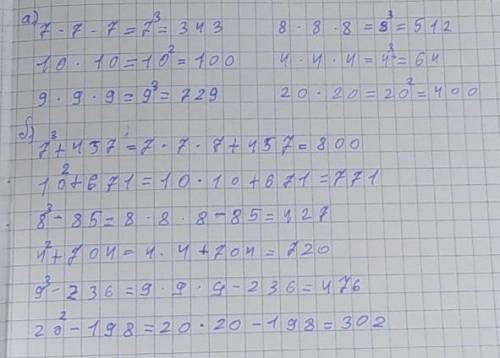 а) 7 · 7 · 7 = 7³ = 343 8 · 8 · 8 = 8³ = 512
10 · 10 = 10² = 100 4 · 4 · 4 = 4³ = 64
9 · 9 · 9 = 9³ = 729 20 · 20 = 20² = 400
б) 7³ + 457 = 7 · 7 · 7 + 457 = 800
10² + 671 = 10 · 10 + 671 = 771
8³ - 85 = 8 · 8 · 8 - 85 = 427
4² + 704 = 4 · 4 + 704 = 720
9³ - 236 = 9 · 9 · 9 - 236 = 476
20² - 198 = 20 · 20 - 198 = 302